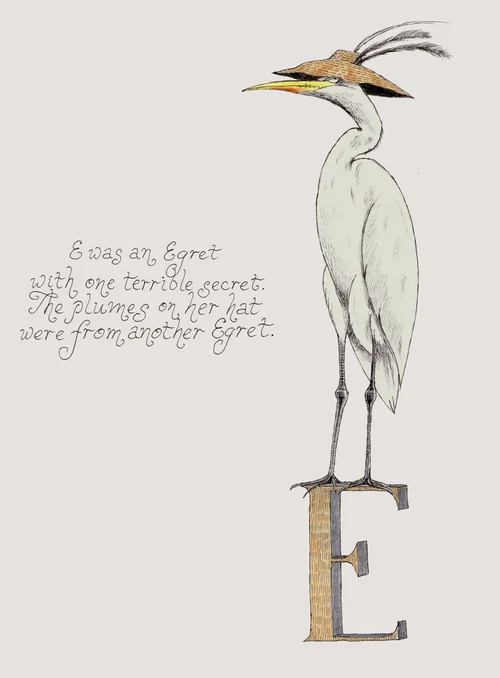 E was an Egret
with one terrible secret.
The plumes on her hat
were from another Egret.
E